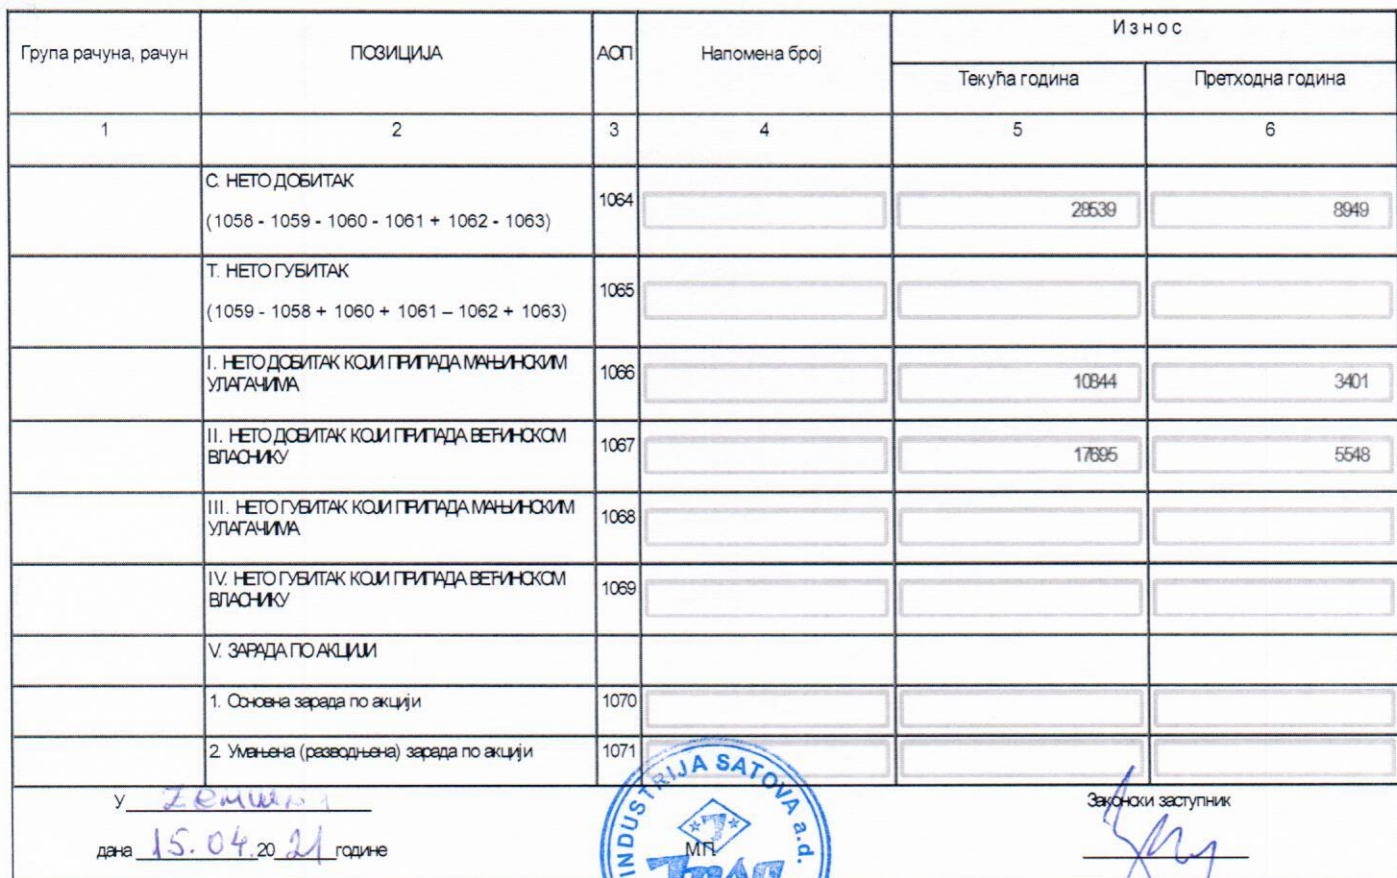 Група рачуна, рачун ПОЗИЦИЈА АОП Напомена број Износ
Текућа година Претходна година
1 2 3 4 5 6
С. НЕТО ДОБИТАК
(1058 - 1059 - 1060 - 1061 + 1062 - 1063) 1064 28539 8949
Т. НЕТО ГУБИТАК
(1059 - 1058 + 1060 + 1061 – 1062 + 1063) 1065
I. НЕТО ДОБИТАК КОЈИ ПРИПАДА МАЊИНСКИМ
УЛАГАЧИМА 1066 10844 3401
II. НЕТО ДОБИТАК КОЈИ ПРИПАДА ВЕЋИНСКОМ
ВЛАСНИКУ 1067 17695 5548
III. НЕТО ГУБИТАК КОЈИ ПРИПАДА МАЊИНСКИМ
УЛАГАЧИМА 1068
IV. НЕТО ГУБИТАК КОЈИ ПРИПАДА ВЕЋИНСКОМ
ВЛАСНИКУ 1069
V. ЗАРАДА ПО АКЦИЈИ
1. Основна зарада по акцији 1070
2. Умањена (разводњена) зарада по акцији 1071
INDUSTRIJA SATOVA a.d.
У Законски заступник
дана 15.04.2021 године МП